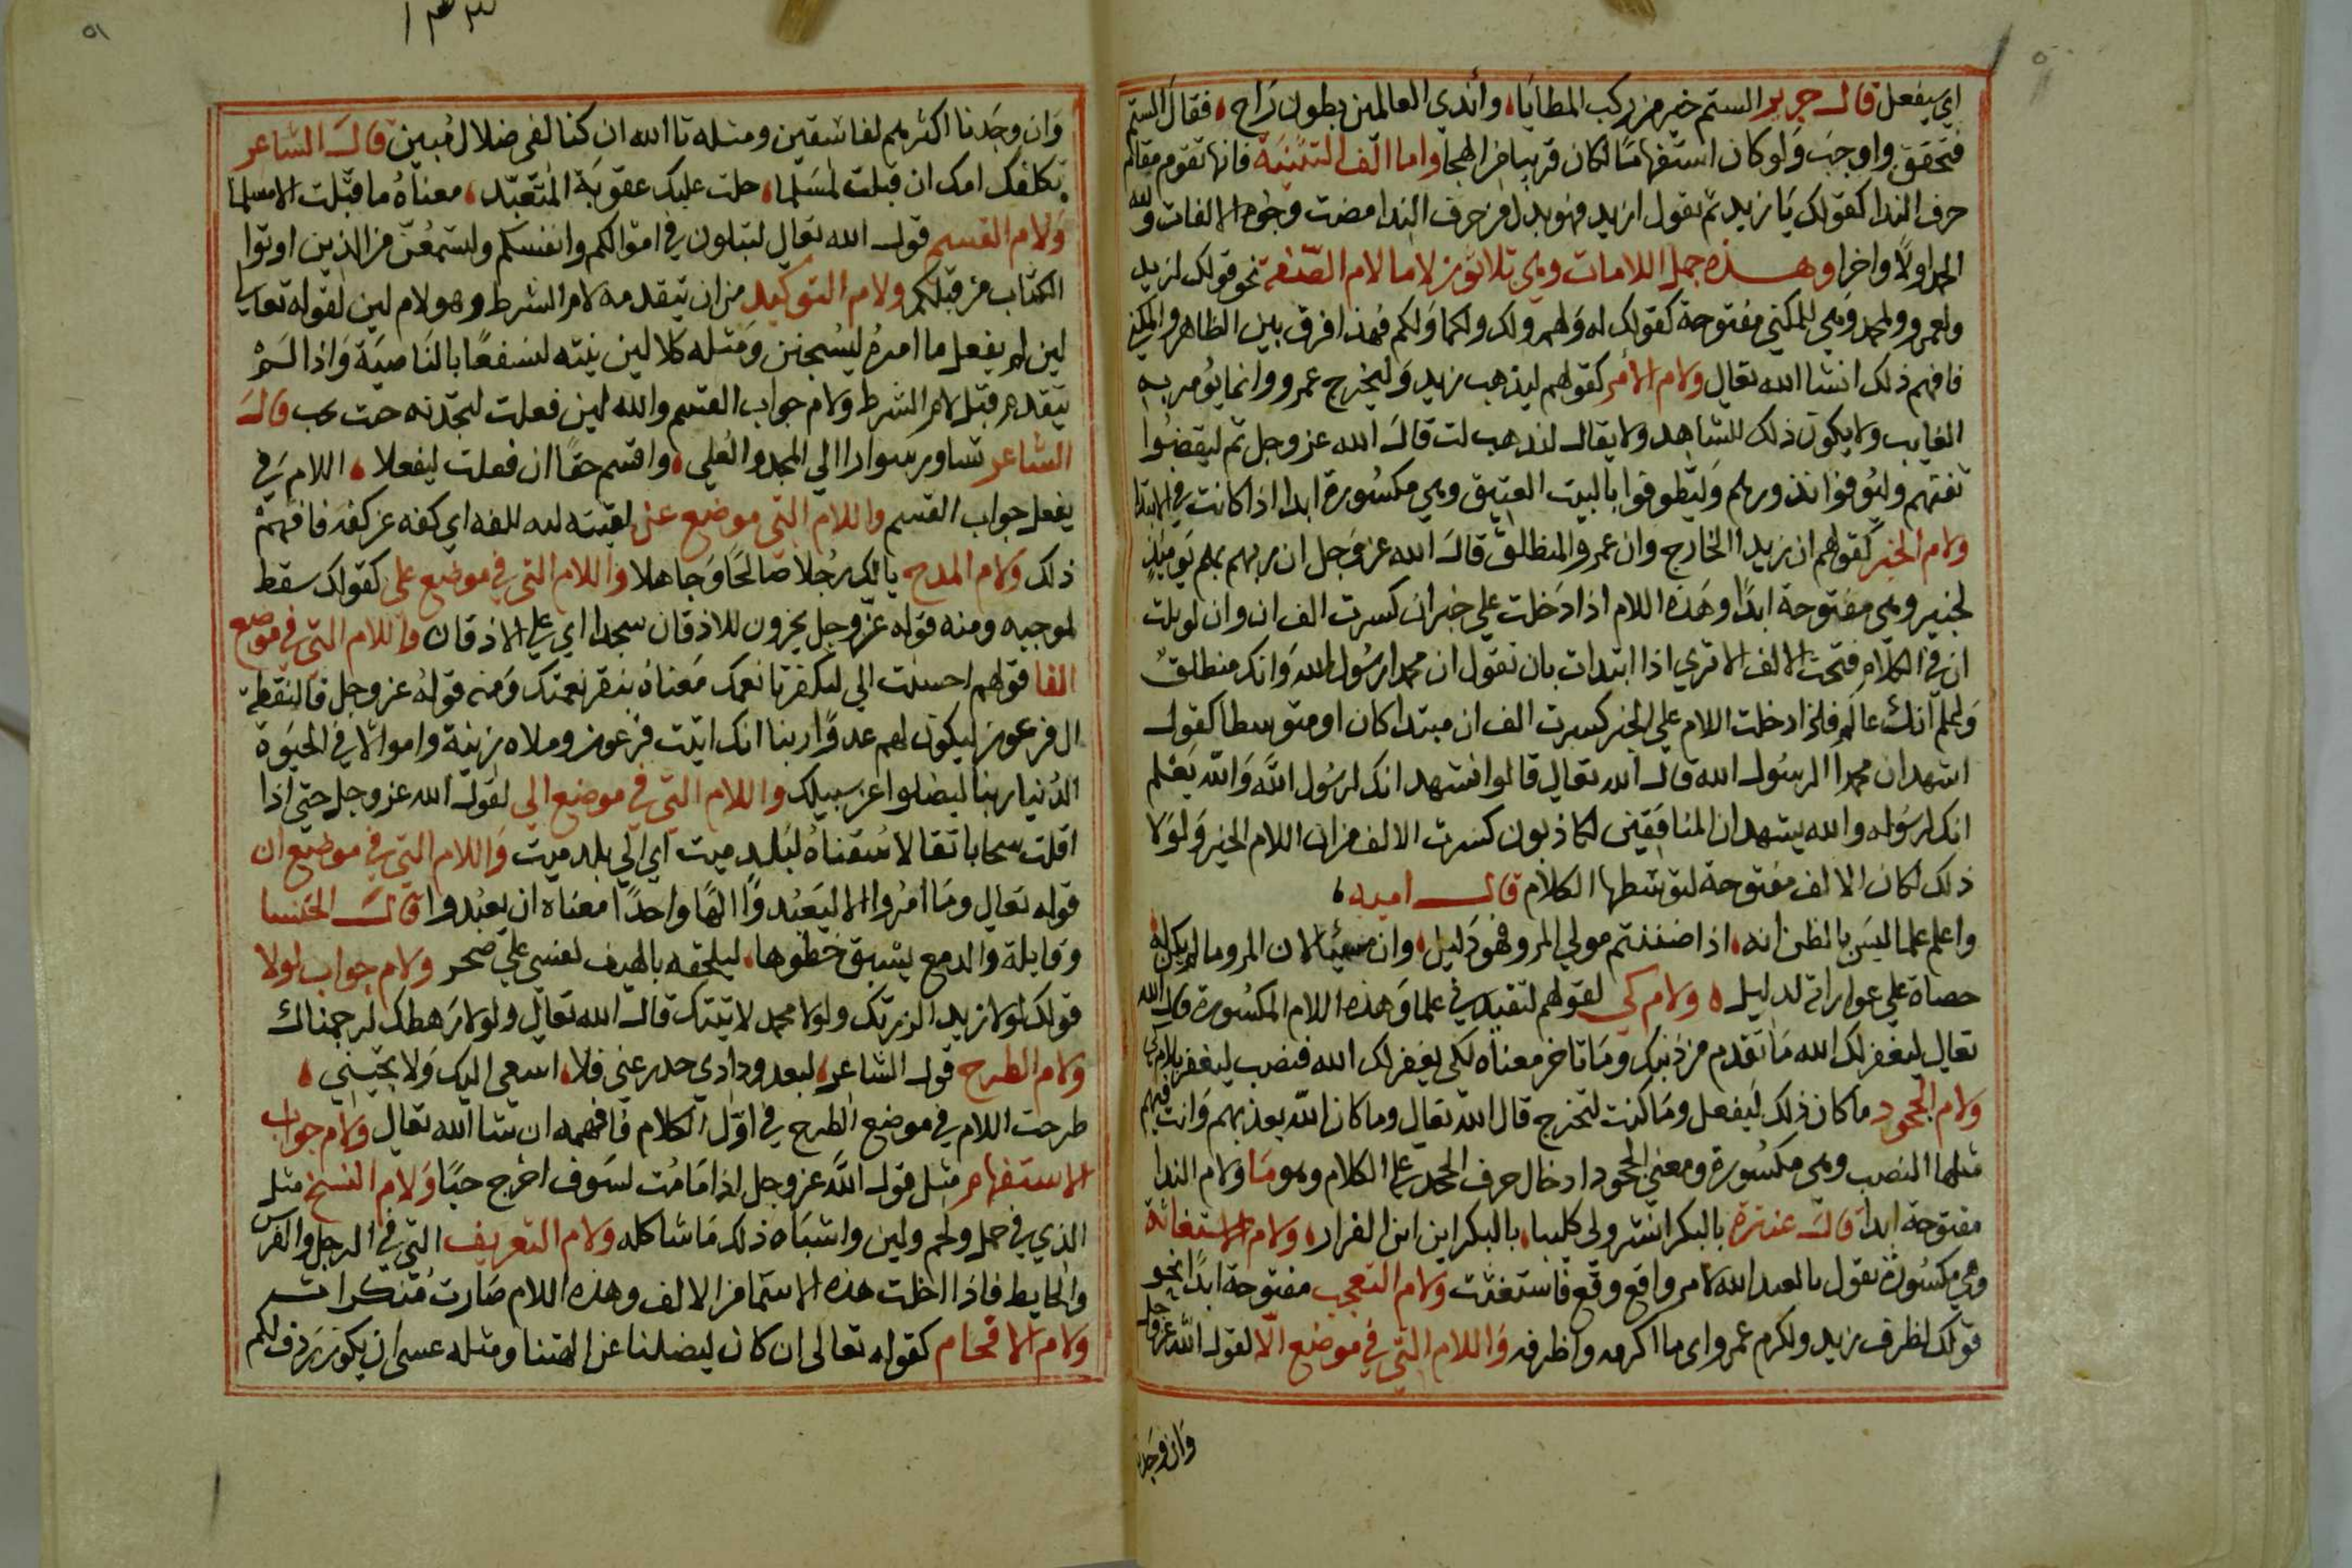 اي يفعل قال جرير الستم خير من ركب المطايا، وأندي العالمين بطون راح، فقال الستم
فتحقق واوجب ولو كان استفهامًا لكان قريبا من الهجا واما الف التنبية فانها تقوم مقام
حرف الندا كقولك يا زيد ثم تقول ازيد فهو بدل من حرف الندا مضت وجوه الالفات ولله
الحمد اولاً واخرا وهذه جمل اللامات وهي ثلاثون لاما لام الصفة نحو قولك لزيد
ولعمرو ولمحمد وهي للمكني مفتوحة كقولك له ولهم ولك ولكما ولكم فهذا فرق بين الظاهر والمكني
فافهم ذلك انشا الله تعالي ولام الأمر كقولهم ليذهب زيد وليخرج عمرو وانما يؤمر به
الغايب ولا يكون ذلك للشاهد ولا يقال لتذهب انت قال الله عز وجل ثم ليقضوا
تفثهم وليوفوا نذورهم وليطوفوا بالبيت العتيق وهي مكسورة ابدا اذا كانت في الابتدا
ولام الخبر كقولهم ان زيدا الخارج وان عمرو المنطلق قال الله عز وجل ان ربهم بهم يوميذ
لخبير وهي مفتوحة ابدًا وهذه اللام اذا دخلت علي خبر ان كسرت الف ان وان لو بلت
ان في الكلام فتحت الالف الا تري اذا ابتدات بان تقول ان محمدا رسول الله وانك منطلق
ولعلم انك عالم فلذا دخلت اللام علي الخبر كسرت الف ان مبتدا كان او متوسطا كقولك
اشهد ان محمدا الرسول الله قال الله تعالي قالوا نشهد انك لرسول الله والله يعلم
انك لرسوله والله يشهد ان المنافقين لكاذبون كسرت الالف من ان اللام الخبر ولولا
ذلك لكان الالف مفتوحة لتوسطها الكلام قال اميه،
واعلم علما ليس بالظن انه، اذا ضننتم مولي المرو فهو ذليل، وان لسان المرو ما لم يكن له
حصاة علي عوراته لدليل، ولام كي لقولهم لتفيدني علما وهذه اللام المكسورة قال الله
تعالي ليغفر لك الله ما تقدم من ذنبك وما تاخر معناه لكي يغفر لك الله فنصب ليغفر بلام كي
ولام الجحود ما كان ذلك ليفعل وما كنت لتخرج قال الله تعالي وما كان الله ليعذبهم وانت فيهم
مثلها النصب وهي مكسورة ومعني الجحود ادخال حرف الجحد علي الكلام وهو ما ولام الندا
مفتوحة ابدا قال عنترة يا لبكر انشرو لي كليبا، يا لبكر اين اين الفرار، ولام الاستغاثة
وهي مكسورة تقول يا لعبد الله لامر واقع وقع فاستغثت ولام التعجب مفتوحة ابدًا نحو
قولك لظرف زيد ولكرم عمرو اي ما اكرمه واظرفه واللام التي في موضع الا لقول الله عز وجل
وان وجدنا
وان وجدنا اكثرهم لفاسقين ومثله تا الله ان كنا لفي ضلال مبين قال الشاعر
ثكلتك امك ان قبلت لمسلما، حلت عليك عقوبة المتعبد، معناه ما قتلت الا مسلما
ولام القسم قول الله تعالي لتبلون في اموالكم وانفسكم ولتسمعن من الذين اوتوا
الكتاب من قبلكم ولام التوكيد من ان يتقدمه لام الشرط وهو لام لين لقوله تعالي
لين لم يفعل ما امره ليسجنن ومثله كلا لين ينته لنسفعًا بالناصية واذا لم
يتقدم قبل لام الشرط ولام جواب القسم والله لين فعلت لتجدنه حيث تحب قال
الشاعر تساور سوارا الي المجد والعلي، واقسم حقًا ان فعلت ليفعلا، اللام في
يفعل جواب القسم واللام التي موضع عن لقيته للفه اي كفه عن كفه فافهم
ذلك ولام المدح يالك رجلا صالحًا وجاهلا واللام التي في موضع علي كقولك سقط
لوجهه ومنه قوله عز وجل يخرون للاذقان سجدا اي علي الاذقان واللام التي في موضع
الفا قولهم احسنت الي ليكفر نا نعمك معناه بنقر نعمتك ومنه قوله عز وجل فالتقطه
ال فرعون ليكون لهم عدوًا ربنا انك اتيت فرعون وملاه زينة واموالا في الحيوة
الدنيا ربنا ليضلوا عن سبيلك واللام التي في موضع الي لقول الله عز وجل حتي اذا
اقلت سحابا ثقالا سقناه لبلد ميت اي الي بلد ميت واللام التي في موضع ان
قوله تعالي وما امروا الا ليعبدوا الهًا واحدًا معناه ان يعبدوا قال الخنسا
وقايلة والدمع يسبق خطوها، ليلحقه يالهف نفسي علي صخر ولام جواب لولا
قولك لولا زيد لزرتك ولولا محمد لاتيتك قال الله تعالي ولولا رهطك لرجمناك
ولام الطرح قول الشاعر، لبعد ودادي حدرعني فلا، اسعي اليك ولا يحييني،
طرحت اللام في موضع الطرح في اوّل الكلام فافهمه ان شا الله تعالي ولام جواب
الاستفهام مثل قول الله عز وجل اذا ما مت لسوف اخرج حيًا ولام النسخ مثل
الذي في حمل ولحم ولين واشباه ذلك ما شاكله ولام التعريف التي في الرجل والفرس
والحايط فاذا ادخلت هذه الاسما من الالف وهذه اللام صارت منكرات
ولام الاقحام كقوله تعالى ان كان ليضلنا عن الهتنا ومثله عسى ان يكون ردف لكم